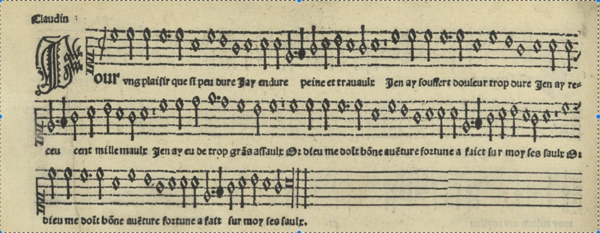 Claudin
Pour vng plaisir que si peu dure Jay endure peine et trauaulx Jen ay souffert douleur trop dure Jen ay re-
ceu cent mille maulx Jen ay eu de trop grãs assaulx Or dieu me doit bõne auẽture fortune a faict sur moy ses saulx Or
dieu me doit bõne auẽture fortune a fait sur moy ses saulx.